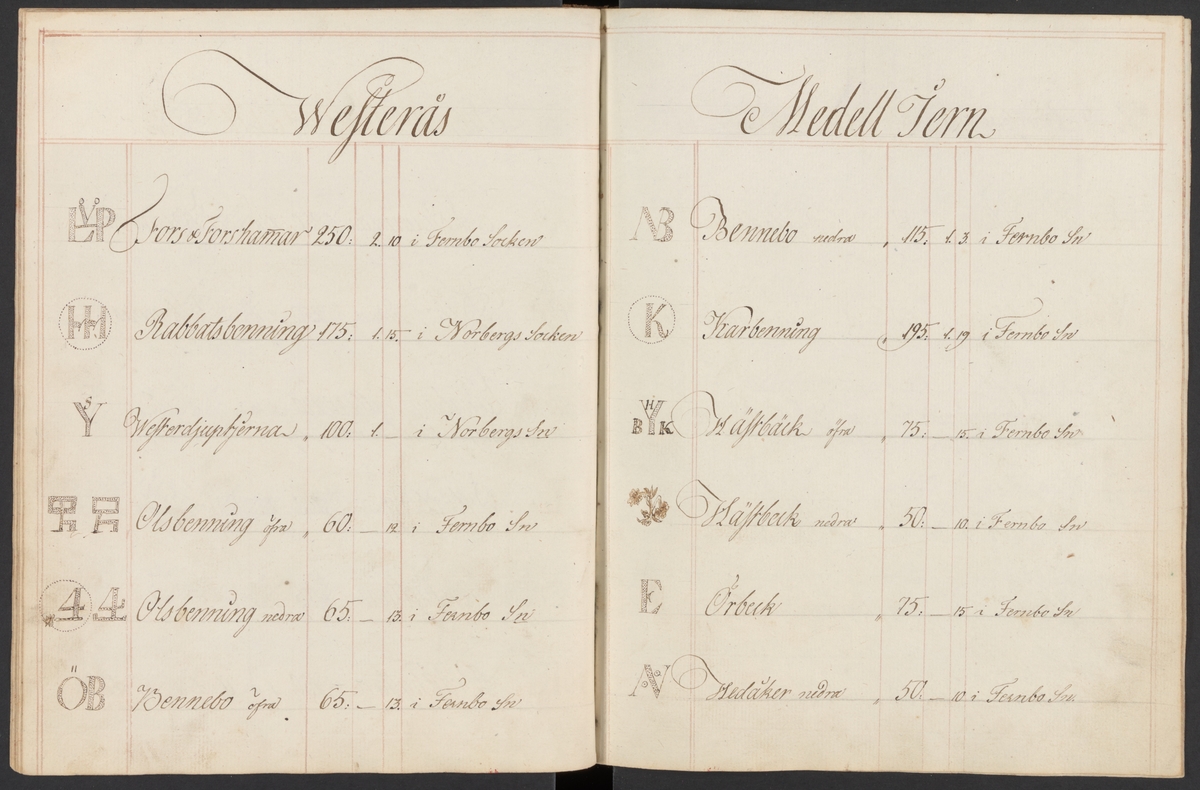 Westerås
LP Fors & Forshamar 250: 2. 10 i Fernbo Socken
HH Rabbatsbenning 175: 1. 15. i Norbergs Socken
S Y Westerdjuptjerna „ 100: 1. — i Norbergs Sn
Olsbenning öfra „ 60: — 12 i Fernbo Sn
4 4 Olsbenning nedra 65: — 13. i Fernbo Sn
ÖB Bennebo öfra 65: — 13. i Fernbo Sn
Medell Jern
NB Bennebo nedra „ 115: 1. 3. i Fernbo Sn
K Karbenning „ 195: 1. 19 i Fernbo Sn
B H Y K Hästbäck öfra „ 75: — 15. i Fernbo Sn
Hästbeck nedra „ 50: — 10. i Fernbo Sn
E Örbeck „ 75: — 15 i Fernbo Sn
N Hedåker nedra „ 50: — 10 i Fernbo Sn